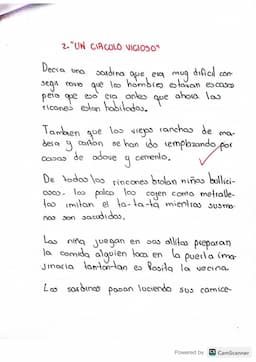 2."UN CIRCULO VICIOSO"
Decia una sardina que era muy dificil con
seguir novio que los hombres estavan escasos
pero que eso era antes que ahora los
rincones estan habitados.
Tambien que los viejos ranchos de ma-
dera y carton se han ido remplazando por
casas de adove y cemento.
De todos los rincones brotan niños bullici-
osos. los palos los cojen como metralle-
tas imitan el ta-ta-ta mientras susma-
nos son sacudidas.
Las niña juegan en sus ollitas preparan
la comida alguien toca en la puerta ima-
ginaria tan-tan-tan es Rosita la vecina.
Las sardinas pasan luciendo sus camice-
Powered by CamScanner